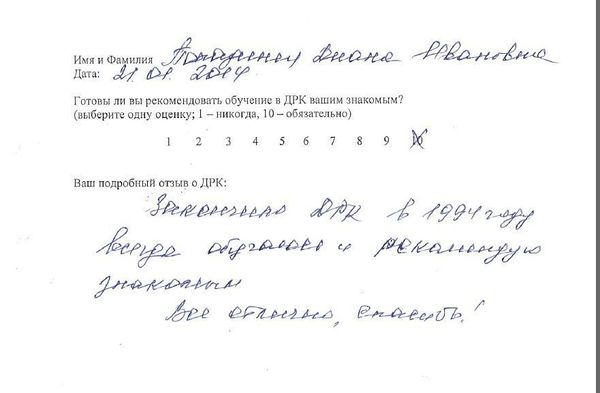 Имя и Фамилия Диана Ивановна
Дата: 21.01.2014
Готовы ли вы рекомендовать обучение в ДРК вашим знакомым?
(выберите одну оценку; 1 – никогда, 10 – обязательно)
1 2 3 4 5 6 7 8 9 10
Ваш подробный отзыв о ДРК:
Закончила ДРК в 1994 году
всегда и рекомендую
знакомым
Все отлично, спасибо!